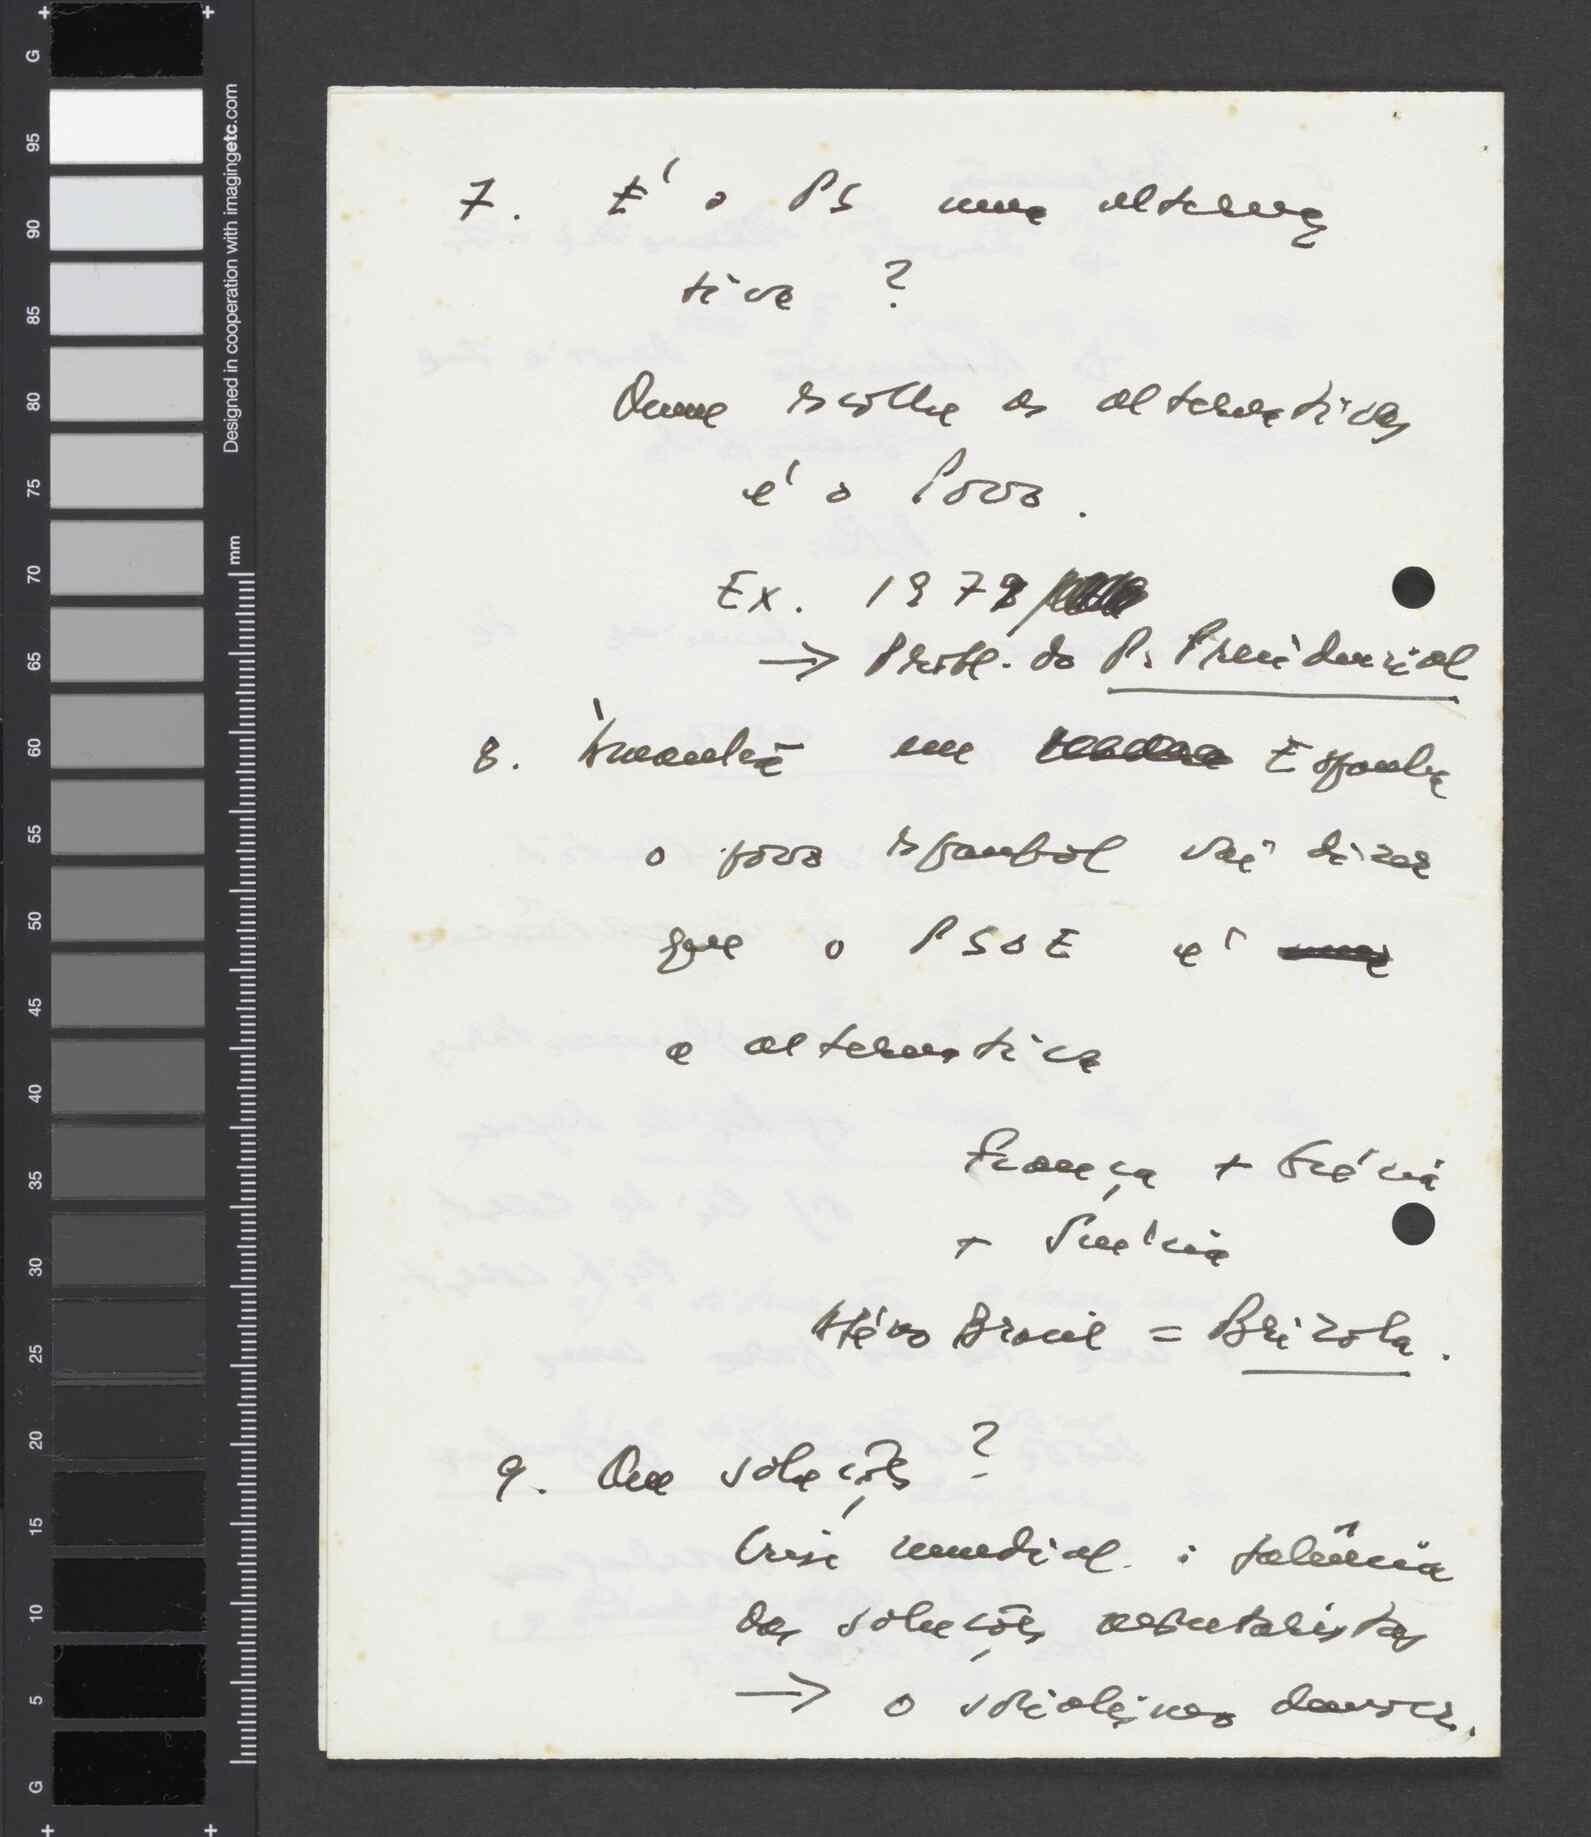 G
95
90
85
80
75
70
65
60
55
50
45
40
35
30
25
20
15
10
5
G
Designed in cooperation with imagingetc.com
mm
7. É o PS uma alterna
tiva ?
Quem escolhe as alternativas
é o Povo.
Ex. 1979
→ Probl. do P. Presidencial
8. Àmanhã em Espanha
o povo espanhol vai dizer
que o PSOE é
a alternativa
França + Grécia
+ Suécia
Até no Brasil = Brizola.
9. Que soluções ?
Crise mundial : falência
das soluções
→ o socialismo democr.